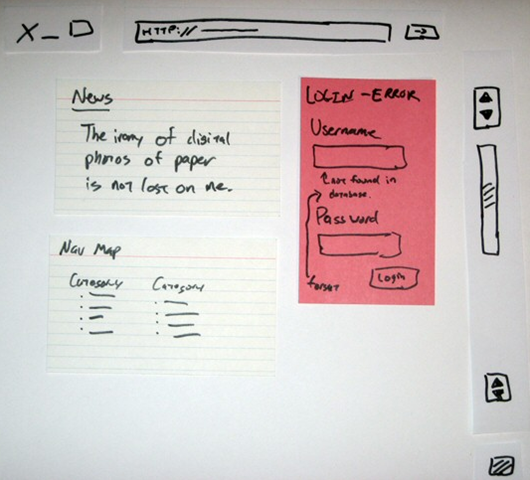 X _ D
HTTP://
News
The irony of digital
photos of paper
is not lost on me.
Nav Map
Category Category
LOGIN - ERROR
Username
not found in
database.
Password
forgot
Login